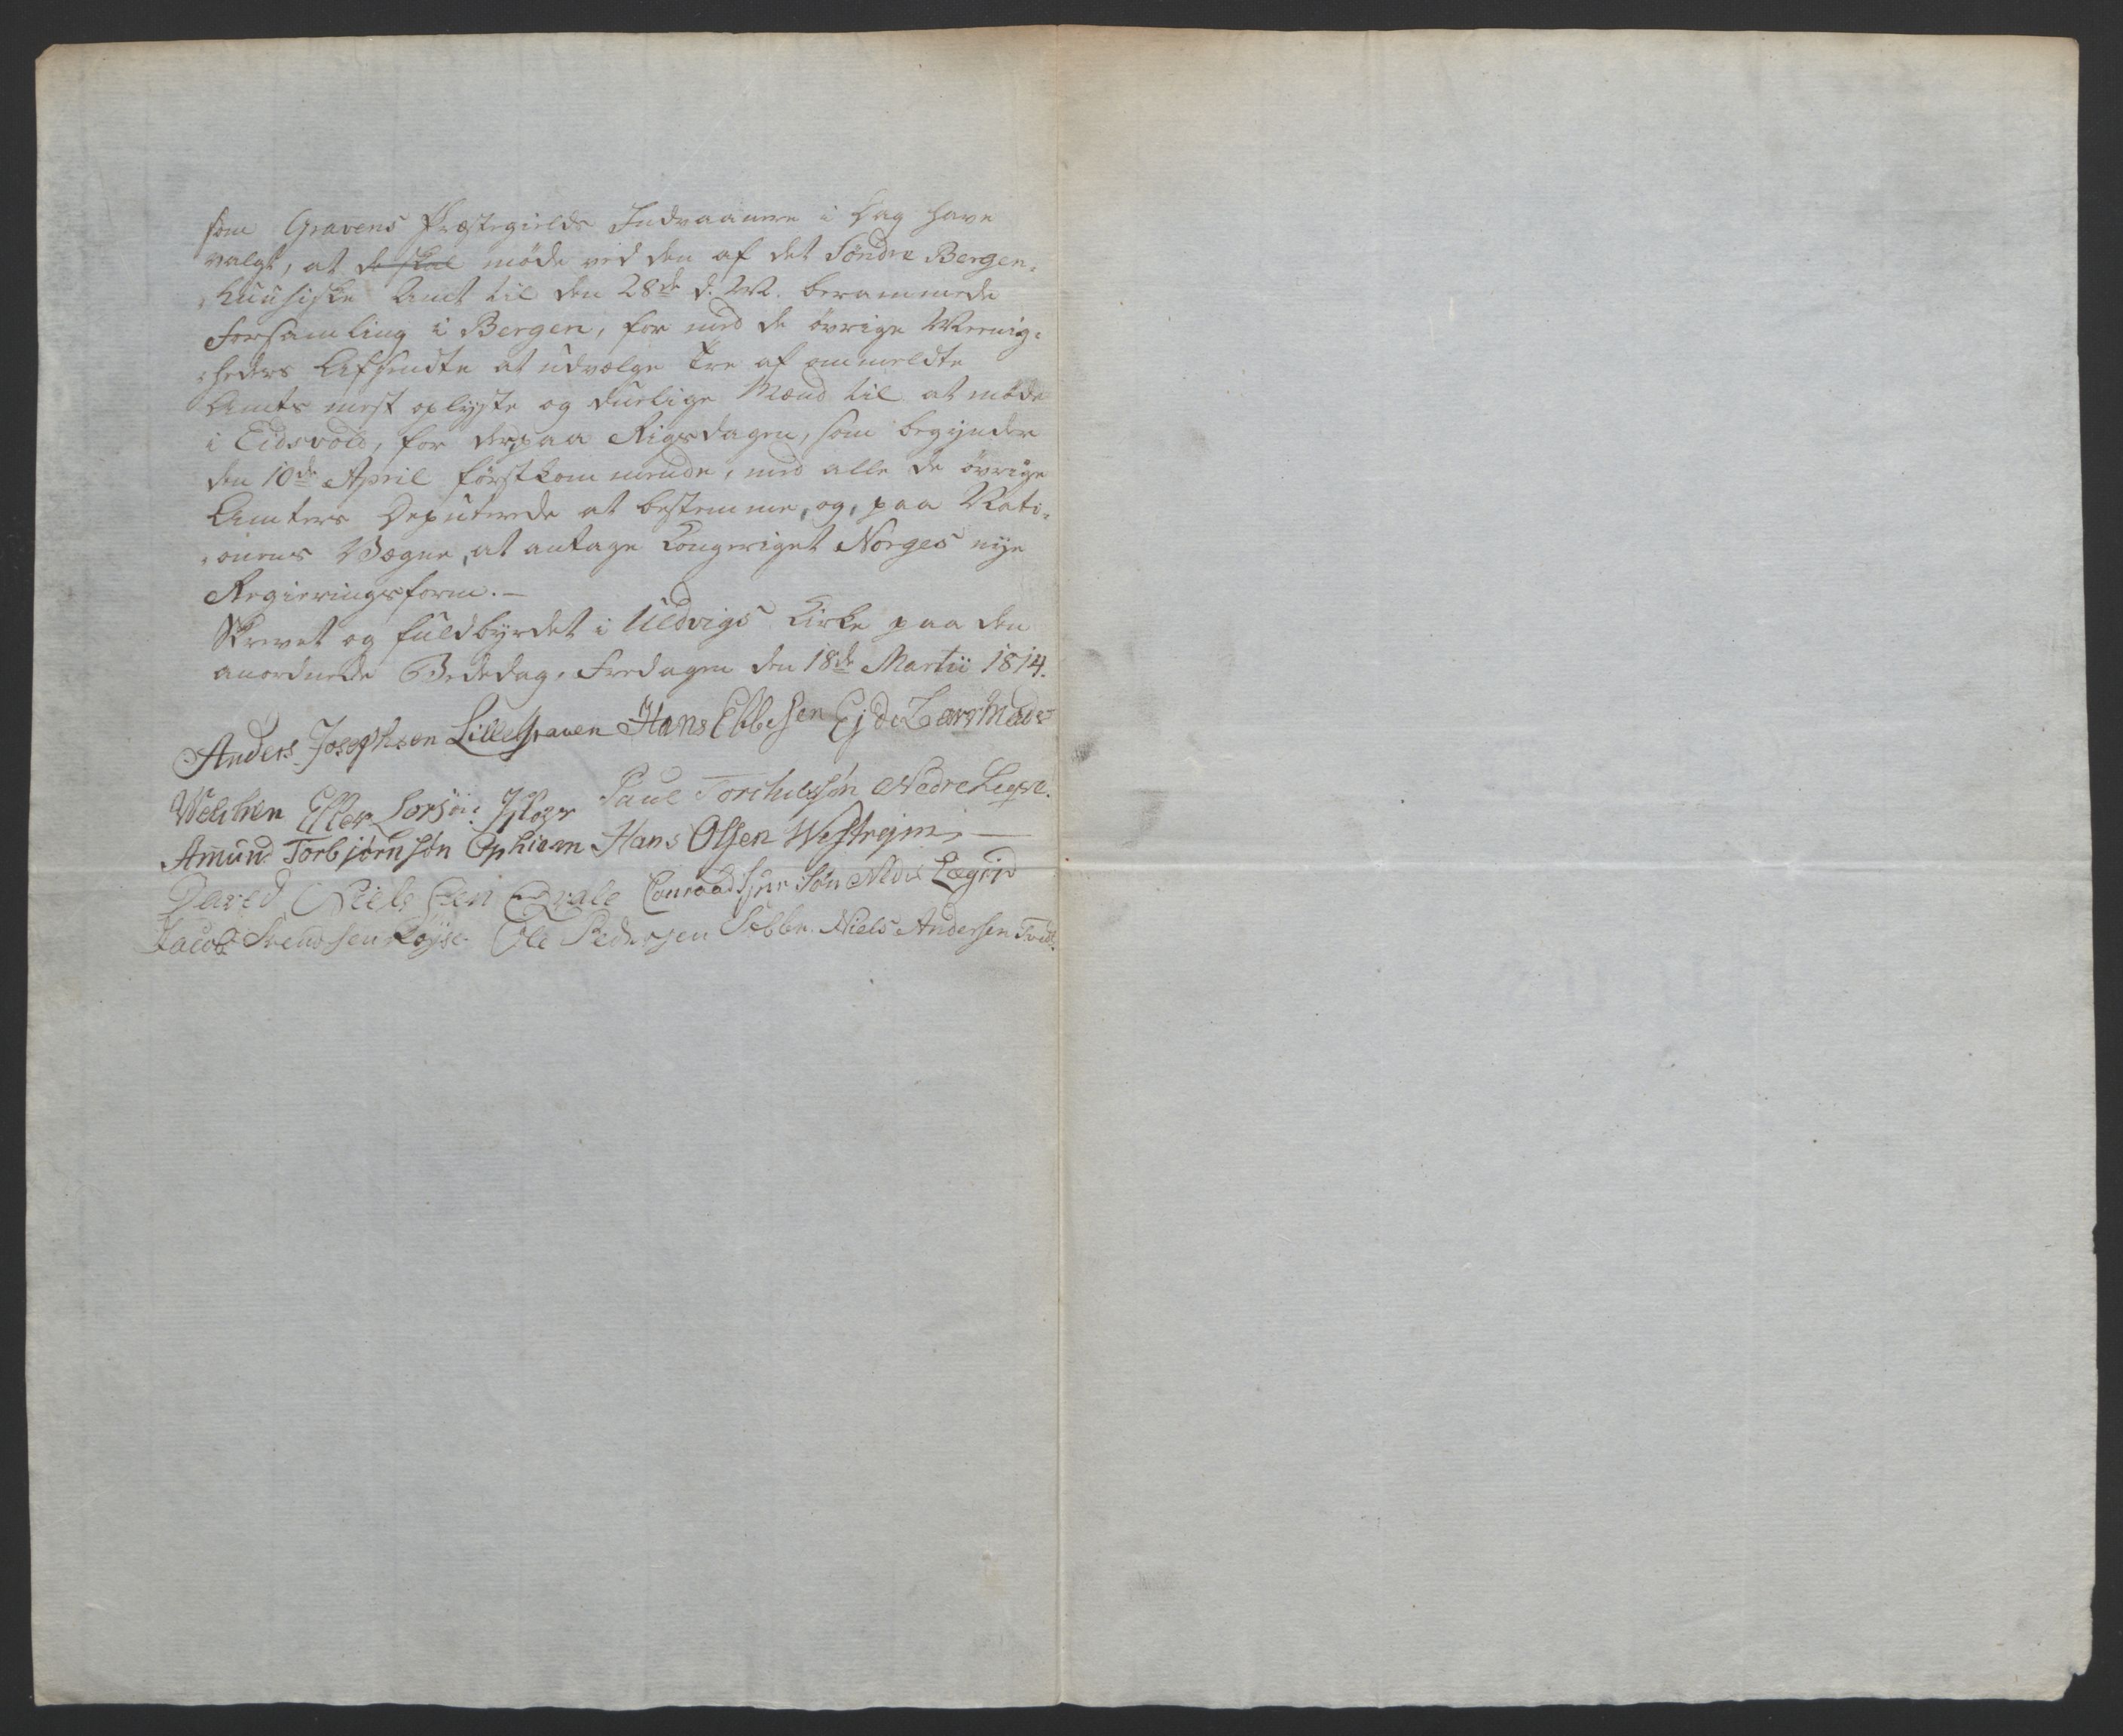 som Gravens Præstegields Indvaanere i Dag have
valgt, at de skal møde ved den af det Søndre Bergen-
-huusiske Amt til den 28de d. M. berammede
Forsamling i Bergen, for med de øvrige Meenig-
-heders Afsendte at udvælge tre af ommeldte
Amts mest oplyste og duelige Mænd til at møde
i Eidsvold, for der paa Rigsdagen, som begynder
den 10de April førstkommende, med alle de øvrige
Amters Deputerede at bestemme, og, paa Nati-
-onens Vægne, at antage Kongeriget Norges nye
Regieringsform.—
Skrevet og fuldbyrdet i Uldvigs Kirke paa den
anordnede Bededag, Fredagen den 18de Martii 1814.
Anders Josephsen Lillegraven Hans Ebbesen Ejde Lars Mads
Paul Torchildsøn Nedre
Amund Torbjørnsøn Ophiem Hans Olsen Westrejm,—
David Nielssen Qvale Conraad Nedre Lægrid
Jacob Svendsen Røyse Ole Pedersen Niels Andersen